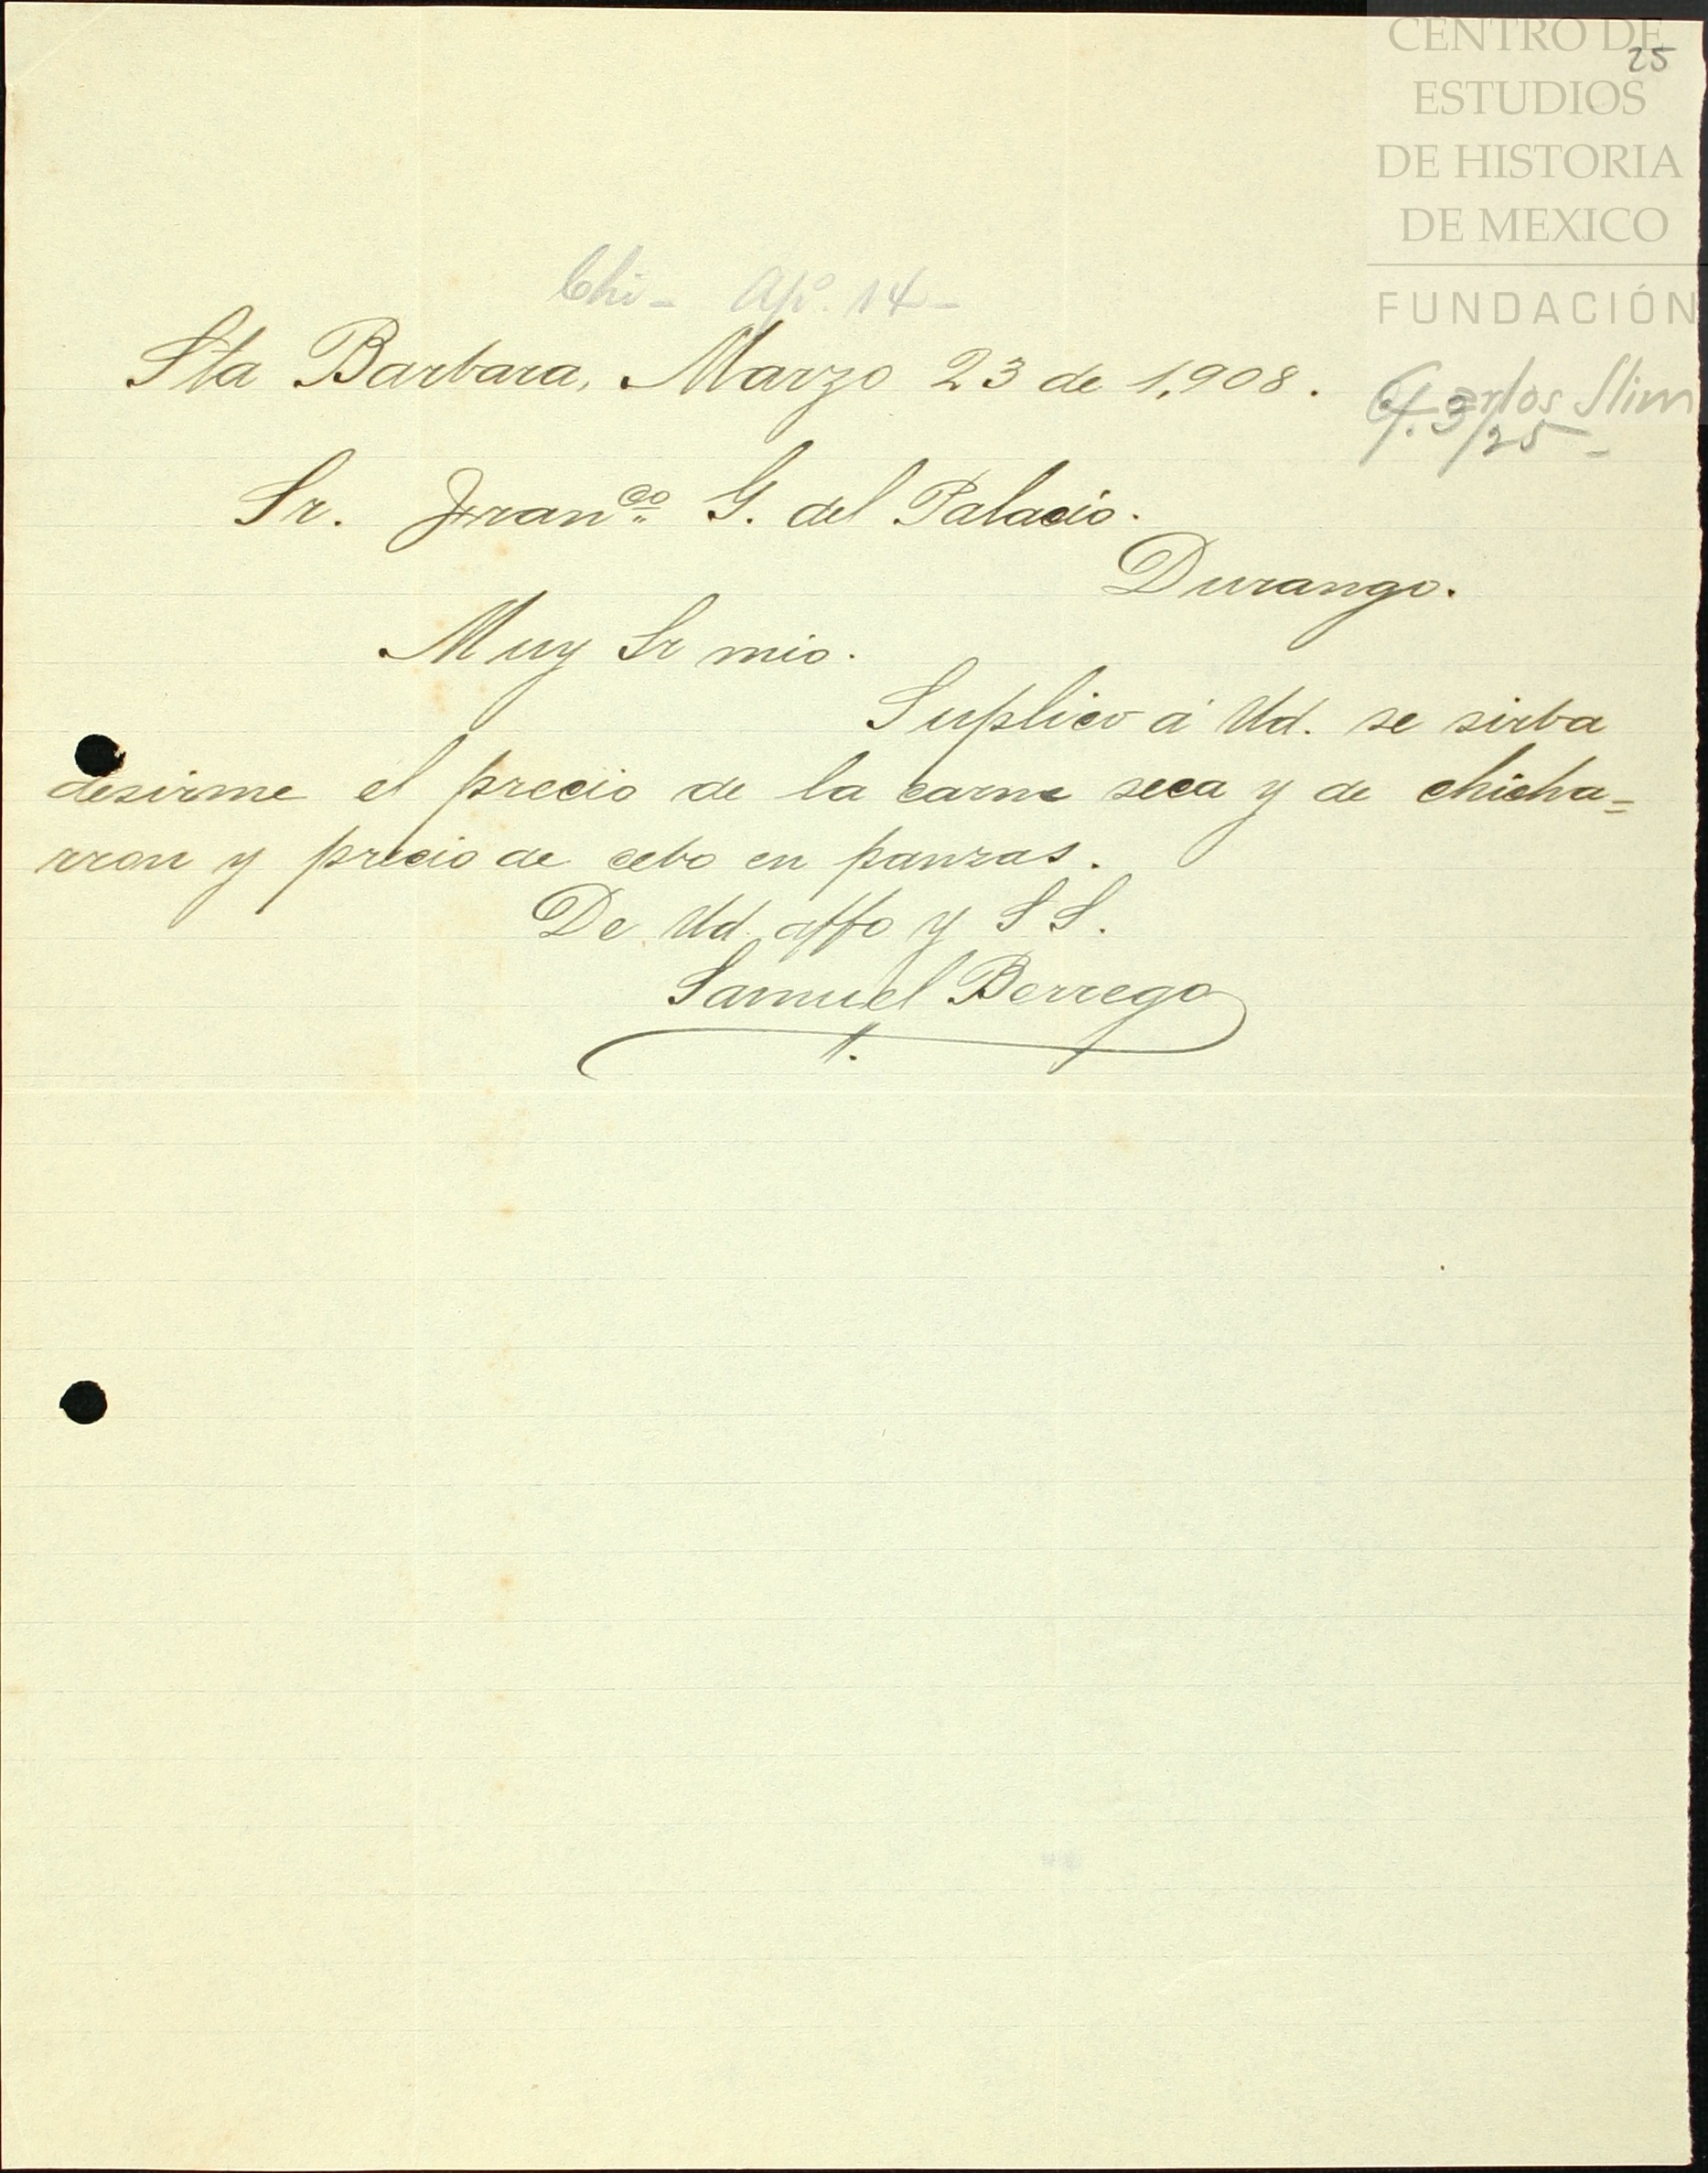 CENTRO DE
25
ESTUDIOS
DE HISTORIA
DE MEXICO
FUNDACIÓN
Carlos Slim
Chi - Ap. 14 -
Sta Barbara, Marzo 23 de 1,908.
3/25 -
Sr. Franco G. del Palacio.
Durango.
Muy Sr mio.
Suplico á Ud. se sirba
desirme el precio de la carne seca y de chicha=
rron y precio de cebo en panzas.
De Ud. affo y S S.
Samuel Berrego